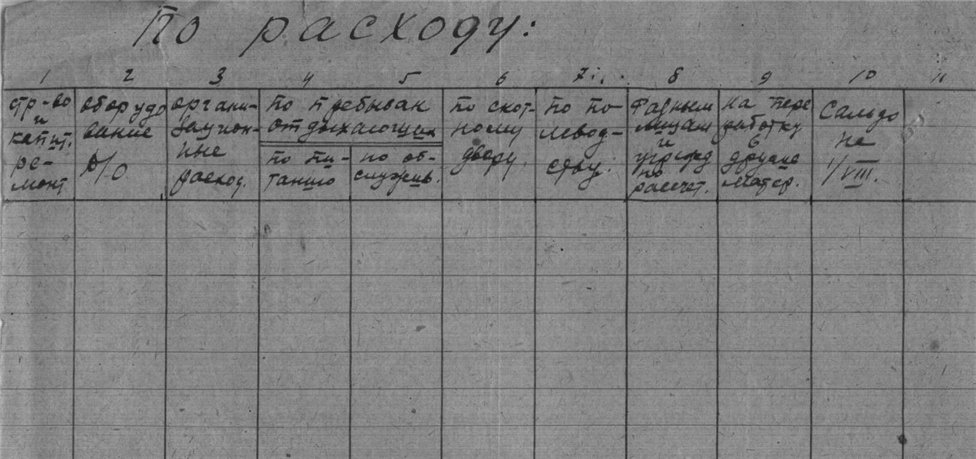 По расходу:
1 2 3 4 5 6 7 8 9 10 11
стр-во
и
капит.
ре-
монт
оборудо
вание
д/о
органи-
зацион-
ные
расход.
по пребыван
отдыхающих
по пи-
танию
по об-
служив.
по скот-
ному
двору.
по по-
левод-
ству.
Разным
лицам
и
учрежд
по
рассчет.
на пере
работку
в
другие
матер.
Сальдо
на
1/VIII.